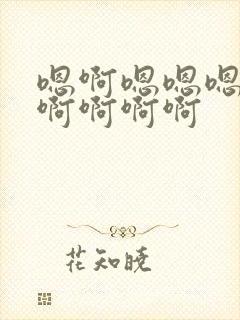 嗯啊嗯嗯嗯
啊啊啊啊
花知晓